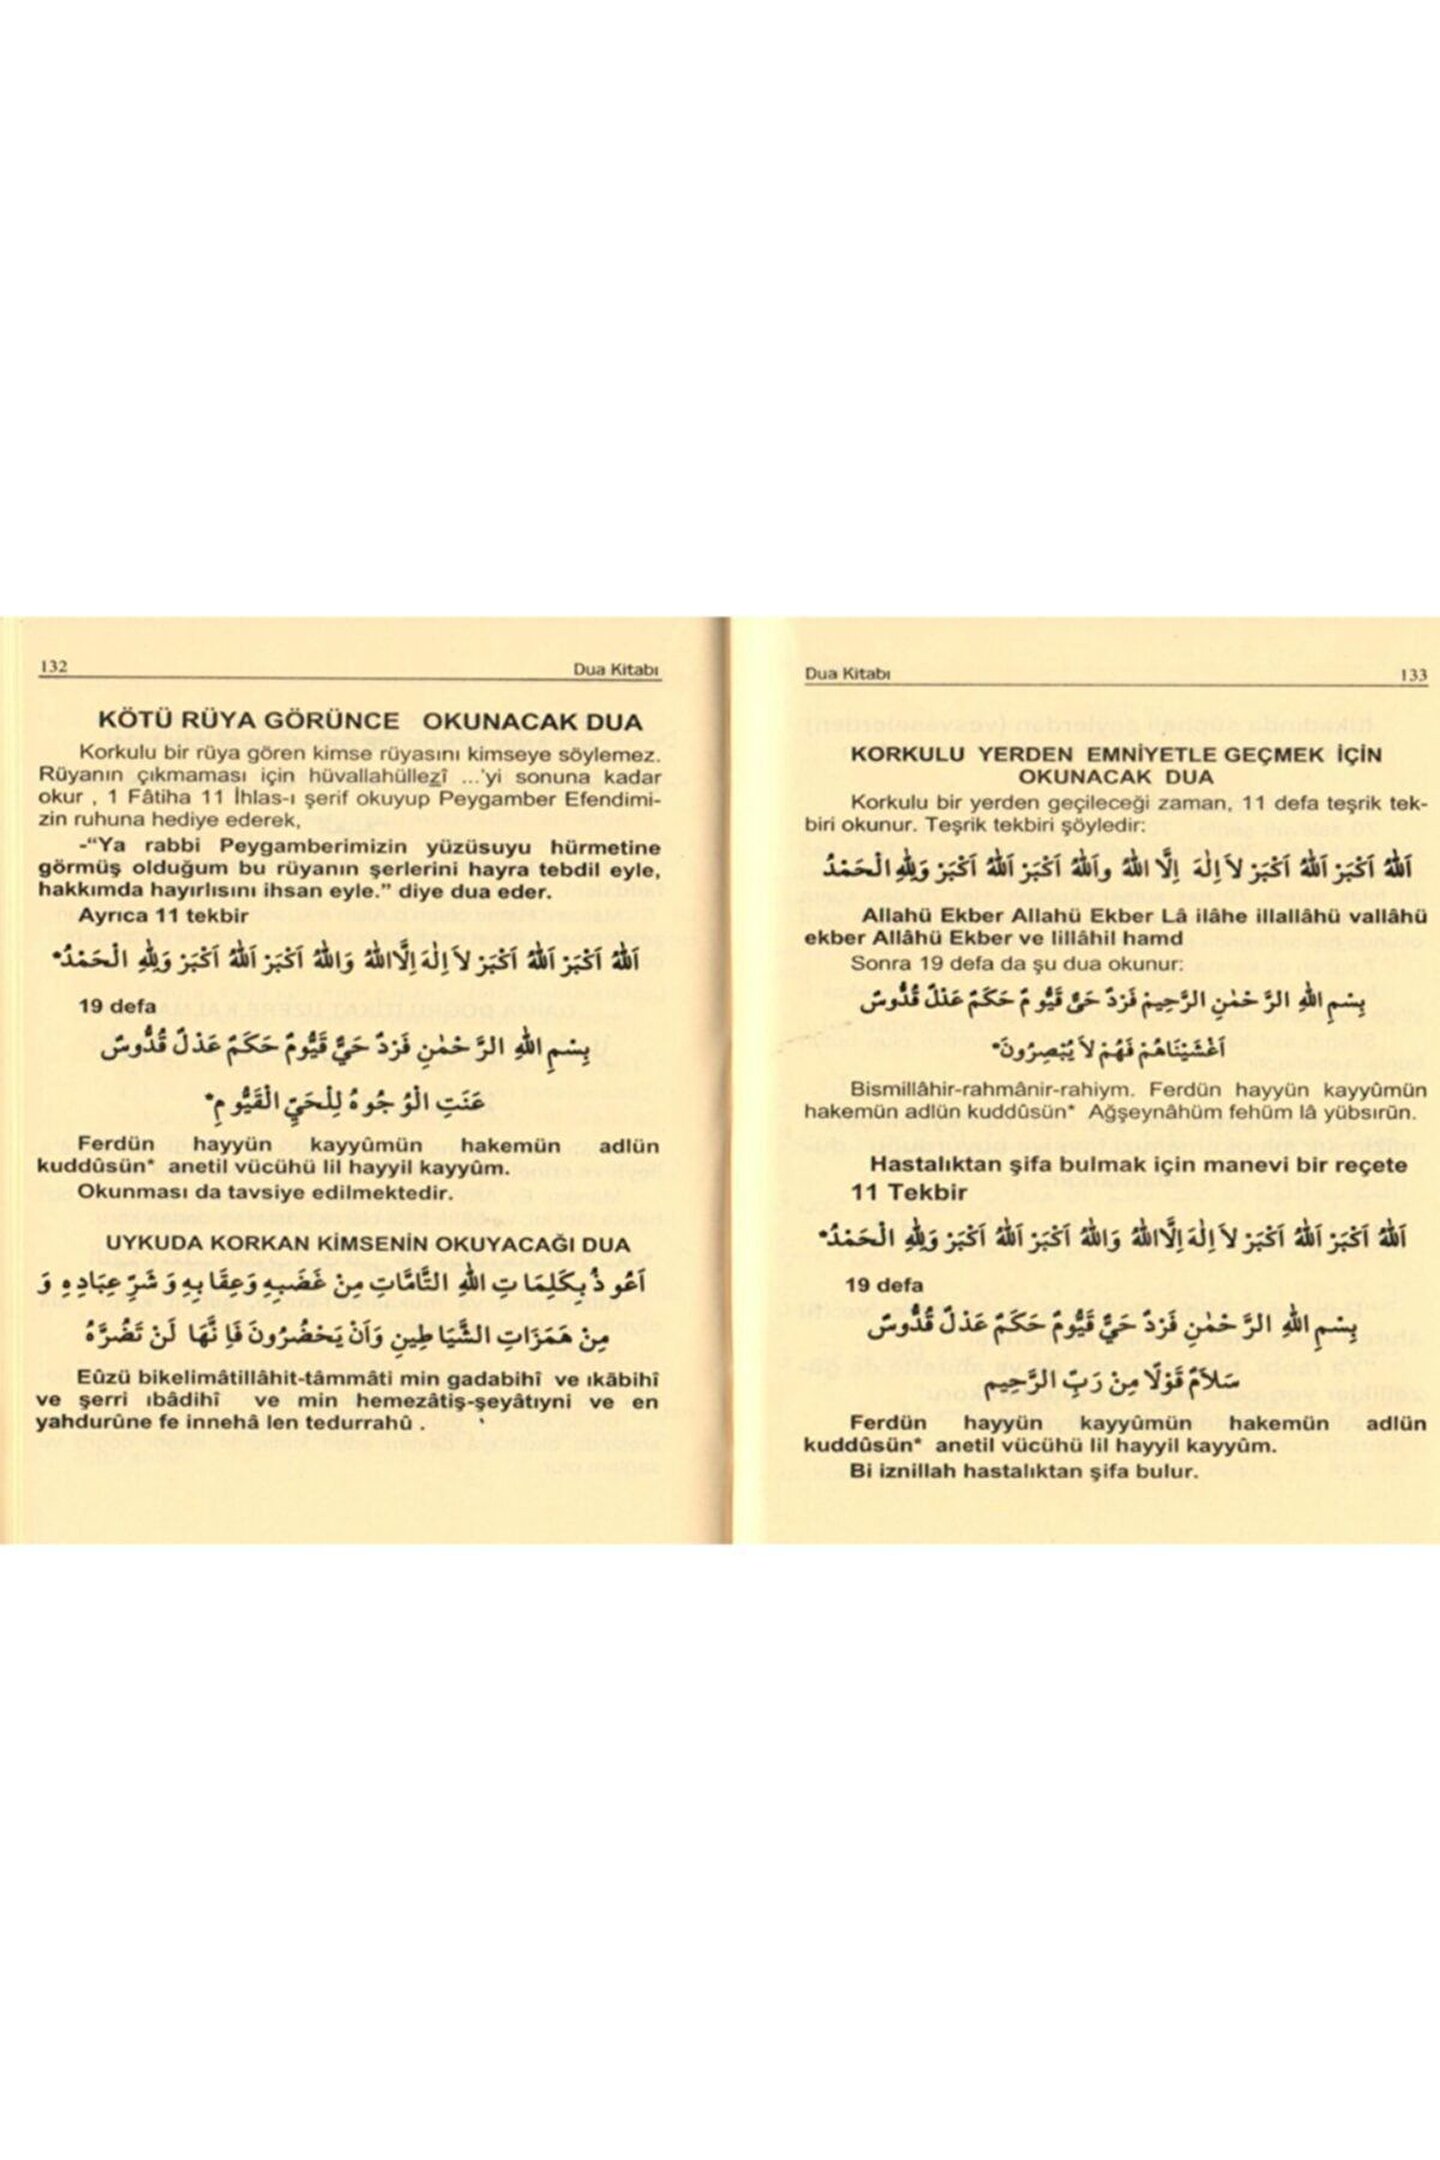 132 Dua Kitabı
KÖTÜ RÜYA GÖRÜNCE OKUNACAK DUA
Korkulu bir rüya gören kimse rüyasını kimseye söylemez.
Rüyanın çıkmaması için hüvallahüllezî ...'yi sonuna kadar
okur , 1 Fâtiha 11 İhlas-ı şerif okuyup Peygamber Efendimi-
zin ruhuna hediye ederek,
-“Ya rabbi Peygamberimizin yüzüsuyu hürmetine
görmüş olduğum bu rüyanın şerlerini hayra tebdil eyle,
hakkımda hayırlısını ihsan eyle.” diye dua eder.
Ayrıca 11 tekbir
اَللّٰهُ اَكْبَرْ اَللّٰهُ اَكْبَرْ لاَ اِلٰهَ اِلَّا اللّٰهُ وَاللّٰهُ اَكْبَرْ اَللّٰهُ اَكْبَرْ وَلِلّٰهِ الْحَمْدُ*
19 defa
بِسْمِ اللّٰهِ الرَّحْمٰنِ فَرْدٌ حَيٌّ قَيُّومٌ حَكَمٌ عَدْلٌ قُدُّوسٌ
عَنَتِ الْوُجُوهُ لِلْحَيِّ الْقَيُّومِ*
Ferdün hayyün kayyûmün hakemün adlün
kuddûsün* anetil vücühü lil hayyil kayyûm.
Okunması da tavsiye edilmektedir.
UYKUDA KORKAN KİMSENİN OKUYACAĞI DUA
اَعُوذُ بِكَلِمَاتِ اللّٰهِ التَّامَّاتِ مِنْ غَضَبِهِ وَعِقَابِهِ وَشَرِّ عِبَادِهِ وَ
مِنْ هَمَزَاتِ الشَّيَاطِينِ وَاَنْ يَحْضُرُونَ فَاِنَّهَا لَنْ تَضُرَّهُ
Eûzü bikelimâtillâhit-tâmmâti min gadabihî ve ıkâbihî
ve şerri ıbâdihî ve min hemezâtiş-şeyâtıyni ve en
yahdurûne fe innehâ len tedurrahû .
Dua Kitabı 133
KORKULU YERDEN EMNİYETLE GEÇMEK İÇİN
OKUNACAK DUA
Korkulu bir yerden geçileceği zaman, 11 defa teşrik tek-
biri okunur. Teşrik tekbiri şöyledir:
اَللّٰهُ اَكْبَرْ اَللّٰهُ اَكْبَرْ لاَ اِلٰهَ اِلَّا اللّٰهُ واَللّٰهُ اَكْبَرْ اَللّٰهُ اَكْبَرْ وَلِلّٰهِ الْحَمْدُ
Allahü Ekber Allahü Ekber Lâ ilâhe illallâhü vallâhü
ekber Allâhü Ekber ve lillâhil hamd
Sonra 19 defa da şu dua okunur:
بِسْمِ اللّٰهِ الرَّحْمٰنِ الرَّحِيمِ فَرْدٌ حَىٌّ قَيُّومٌ حَكَمٌ عَدْلٌ قُدُّوسٌ
اَغْشَيْنَاهُمْ فَهُمْ لاَ يُبْصِرُونَ*
Bismillâhir-rahmânir-rahiym. Ferdün hayyün kayyûmün
hakemün adlün kuddûsün* Ağşeynâhüm fehüm lâ yübsırûn.
Hastalıktan şifa bulmak için manevi bir reçete
11 Tekbir
اَللّٰهُ اَكْبَرْ اَللّٰهُ اَكْبَرْ لاَ اِلٰهَ اِلَّا اللّٰهُ وَاللّٰهُ اَكْبَرْ اَللّٰهُ اَكْبَرْ وَلِلّٰهِ الْحَمْدُ*
19 defa
بِسْمِ اللّٰهِ الرَّحْمٰنِ فَرْدٌ حَيٌّ قَيُّومٌ حَكَمٌ عَدْلٌ قُدُّوسٌ
سَلاَمٌ قَوْلًا مِنْ رَبِّ الرَّحِيمِ
Ferdün hayyün kayyûmün hakemün adlün
kuddûsün* anetil vücühü lil hayyil kayyûm.
Bi iznillah hastalıktan şifa bulur.